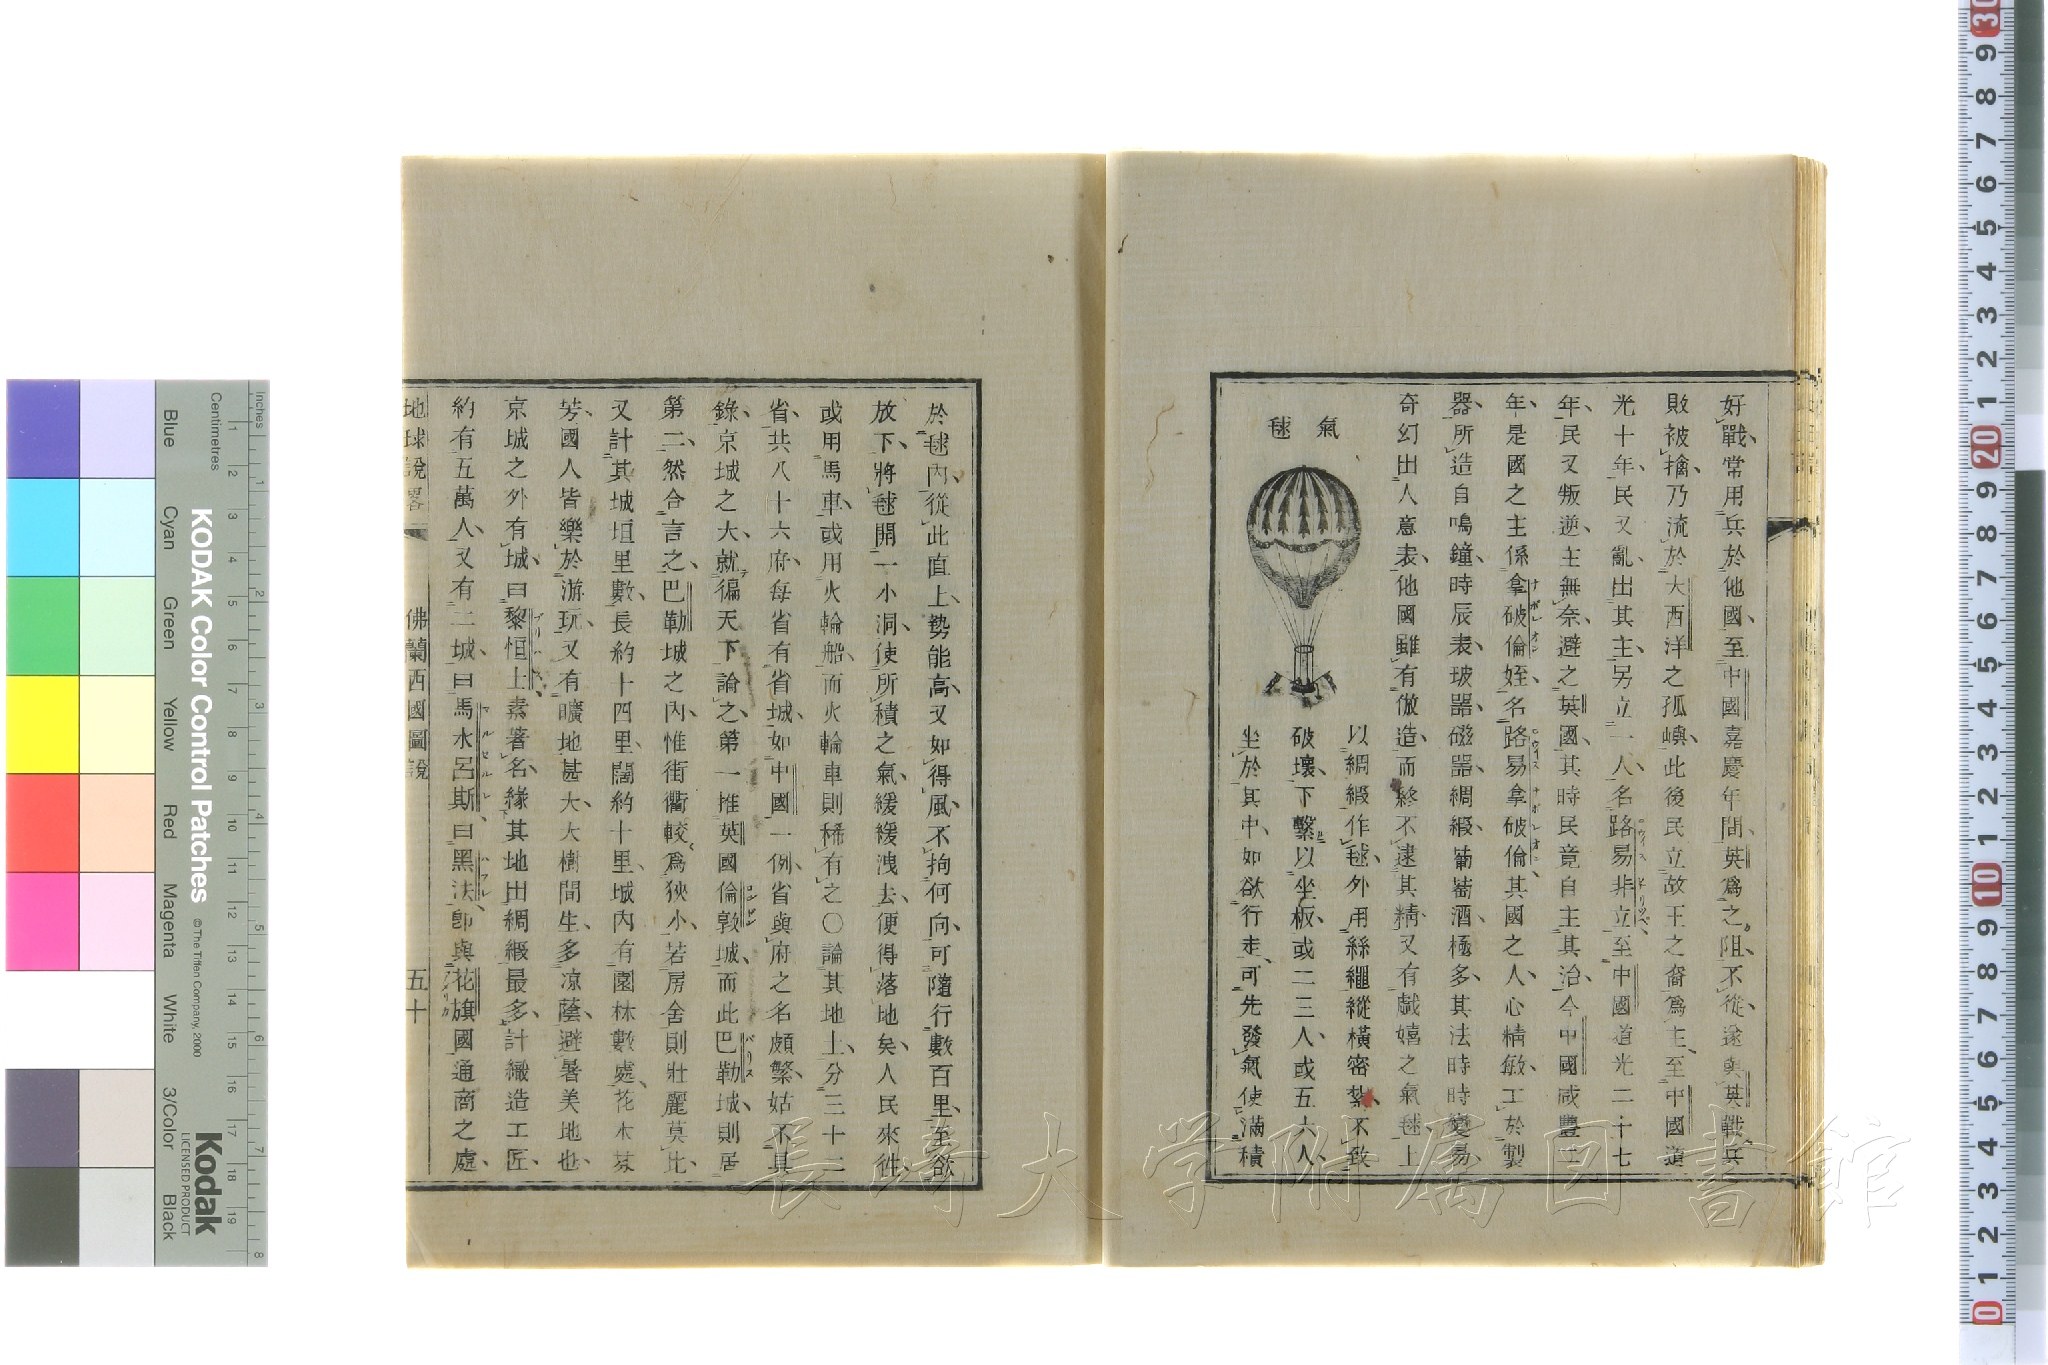 好戰常用兵於他國至中國嘉慶年間英爲之阻不從遂與英戰兵
敗被擒乃流於大西洋之孤嶼此後民立故王之裔爲主至中國道
光十年民又亂出其主另立一人名路易非立至中國道光二十七
年民又叛逆主無奈避之英國其時民竟自主其治今中國咸豐二
年是國之主係拿破倫姪名路易拿破倫其國之人心精敏工於製
器所造自鳴鐘時辰表玻器磁器綢緞葡萄酒極多其法時時變易
奇幻出人意表他國雖有倣造而終不逮其精又有戱嬉之氣毬上
氣毬
以綢緞作毬外用絲繩縱橫密紮不致
破壞下繫以坐板或二三人或五六人
坐於其中如欲行走可先發氣使滿積
於毬內從此直上勢能高又如得風不拘何向可隨行數百里至欲
放下將毬開一小洞使所積之氣緩緩洩去便得落地矣人民來徃
或用馬車或用火輪船而火輪車則稀有之〇論其地土分三十二
省共八十六府每省有省城如中國一例省與府之名頗繁姑不具
錄京城之大就徧天下論之第一推英國倫敦城而此巴勒城則居
第二然合言之巴勒城之內惟街衢較爲狹小若房舍則壯麗莫比
又計其城垣里數長約十四里闊約十里城內有園林數處花木芬
芳國人皆樂於游玩又有曠地甚大大樹間生多凉蔭避暑美地也
京城之外有城曰黎恒上素著名緣其地出綢緞最多計織造工匠
約有五萬人又有二城曰馬水呂斯曰黑法卽與花旗國通商之處
地球說畧 佛蘭西國圖說 五十
長崎大学附属図書館
KODAK Color Control Patches
© The Tiffen Company, 2000
Kodak
LICENSED PRODUCT
Inches
Centimetres
Blue Cyan Green Yellow Red Magenta White 3/Color Black